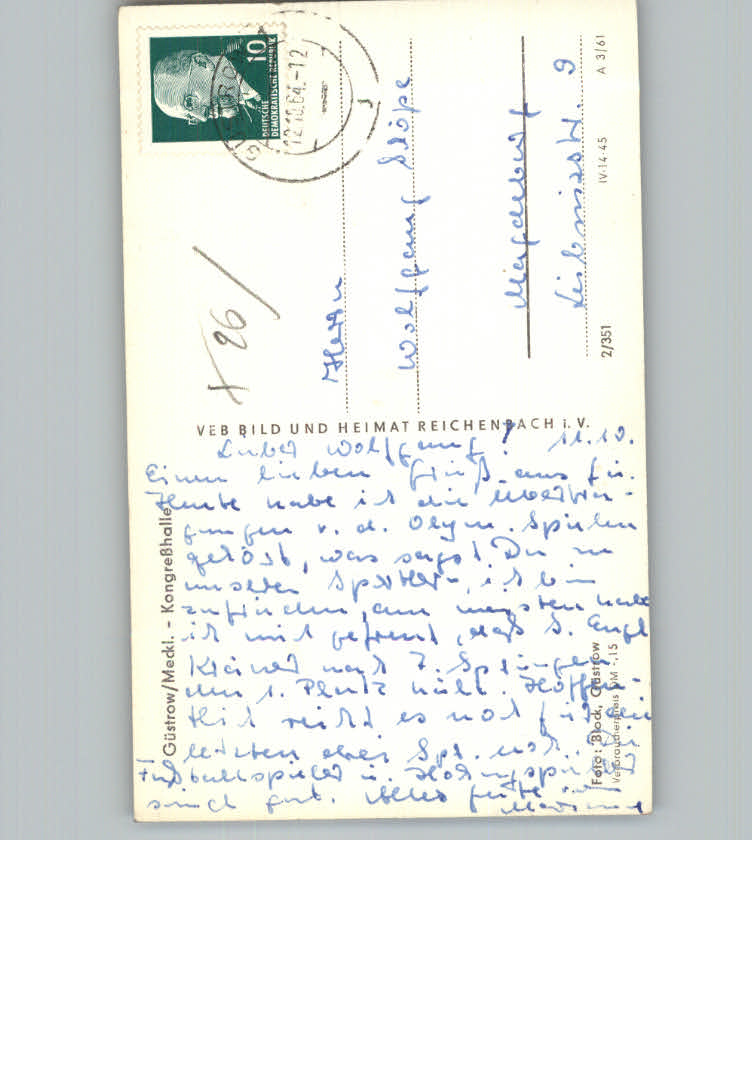 10
DEUTSCHE
DEMOKRATISCHE REPUBLIK
12.10.64.-12
+ 26
Herrn
Wolfgang
Magdeburg
Leibnizstr. 9
IV-14-45 A 3/61
2/351
VEB BILD UND HEIMAT REICHENBACH i. V.
Güstrow/Meckl. – Kongreßhalle
Foto: Block, Güstrow
Verbraucherpreis DM -,15
Lieber Wolfgang! 11.10.
Einen lieben Gruß aus Gü.
Heute habe ich die Übertra-
gungen v. d. Olym. Spielen
gehört, was sagst Du zu
unseren Sportlern, ich bin
zufrieden, am meisten habe
ich mich gefreut, daß I. Engel
Krämer nach 7. Sprüngen
den 1. Platz hält. Hoffen-
tlich reicht es noch für den
letzten
Fußballspieler u. Hockeyspieler
sind gut. Alles Gute